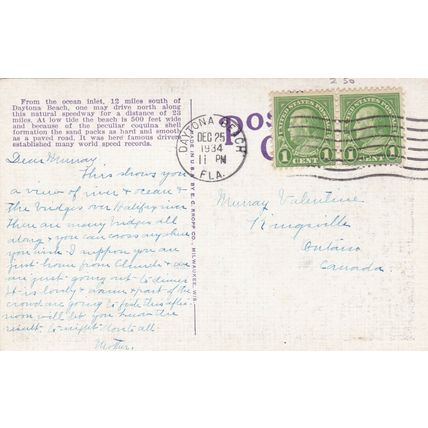 2 50
From the ocean inlet, 12 miles south of
Daytona Beach, one may drive north along
this natural speedway for a distance of 23
miles. At low tide the beach is 500 feet wide
and because of the peculiar coquina shell
formation the sand packs as hard and smooth
as a paved road. It was here famous drivers
established many world speed records.
Dear Murray,
This shows you
a view of river & ocean &
the bridges over Halifax river
There are many bridges all
along & you can cross anywhere
you wish. I suppose you are
just home from Church &
are just going out to dinner
It is lovely & warm & part of the
crowd are going to this after-
noon, will let you know the
result to-night. Love to all
Mother.
MADE IN U.S.A. BY E. C. KROPP CO., MILWAUKEE, WIS.
DAYTONA BEACH
DEC 25
1934
11 PM
FLA.
UNITED STATES POSTAGE
1 CENT 1
UNITED STATES POSTAGE
1 CENT 1
Murray Valentine
Kingsville
Ontario
Canada